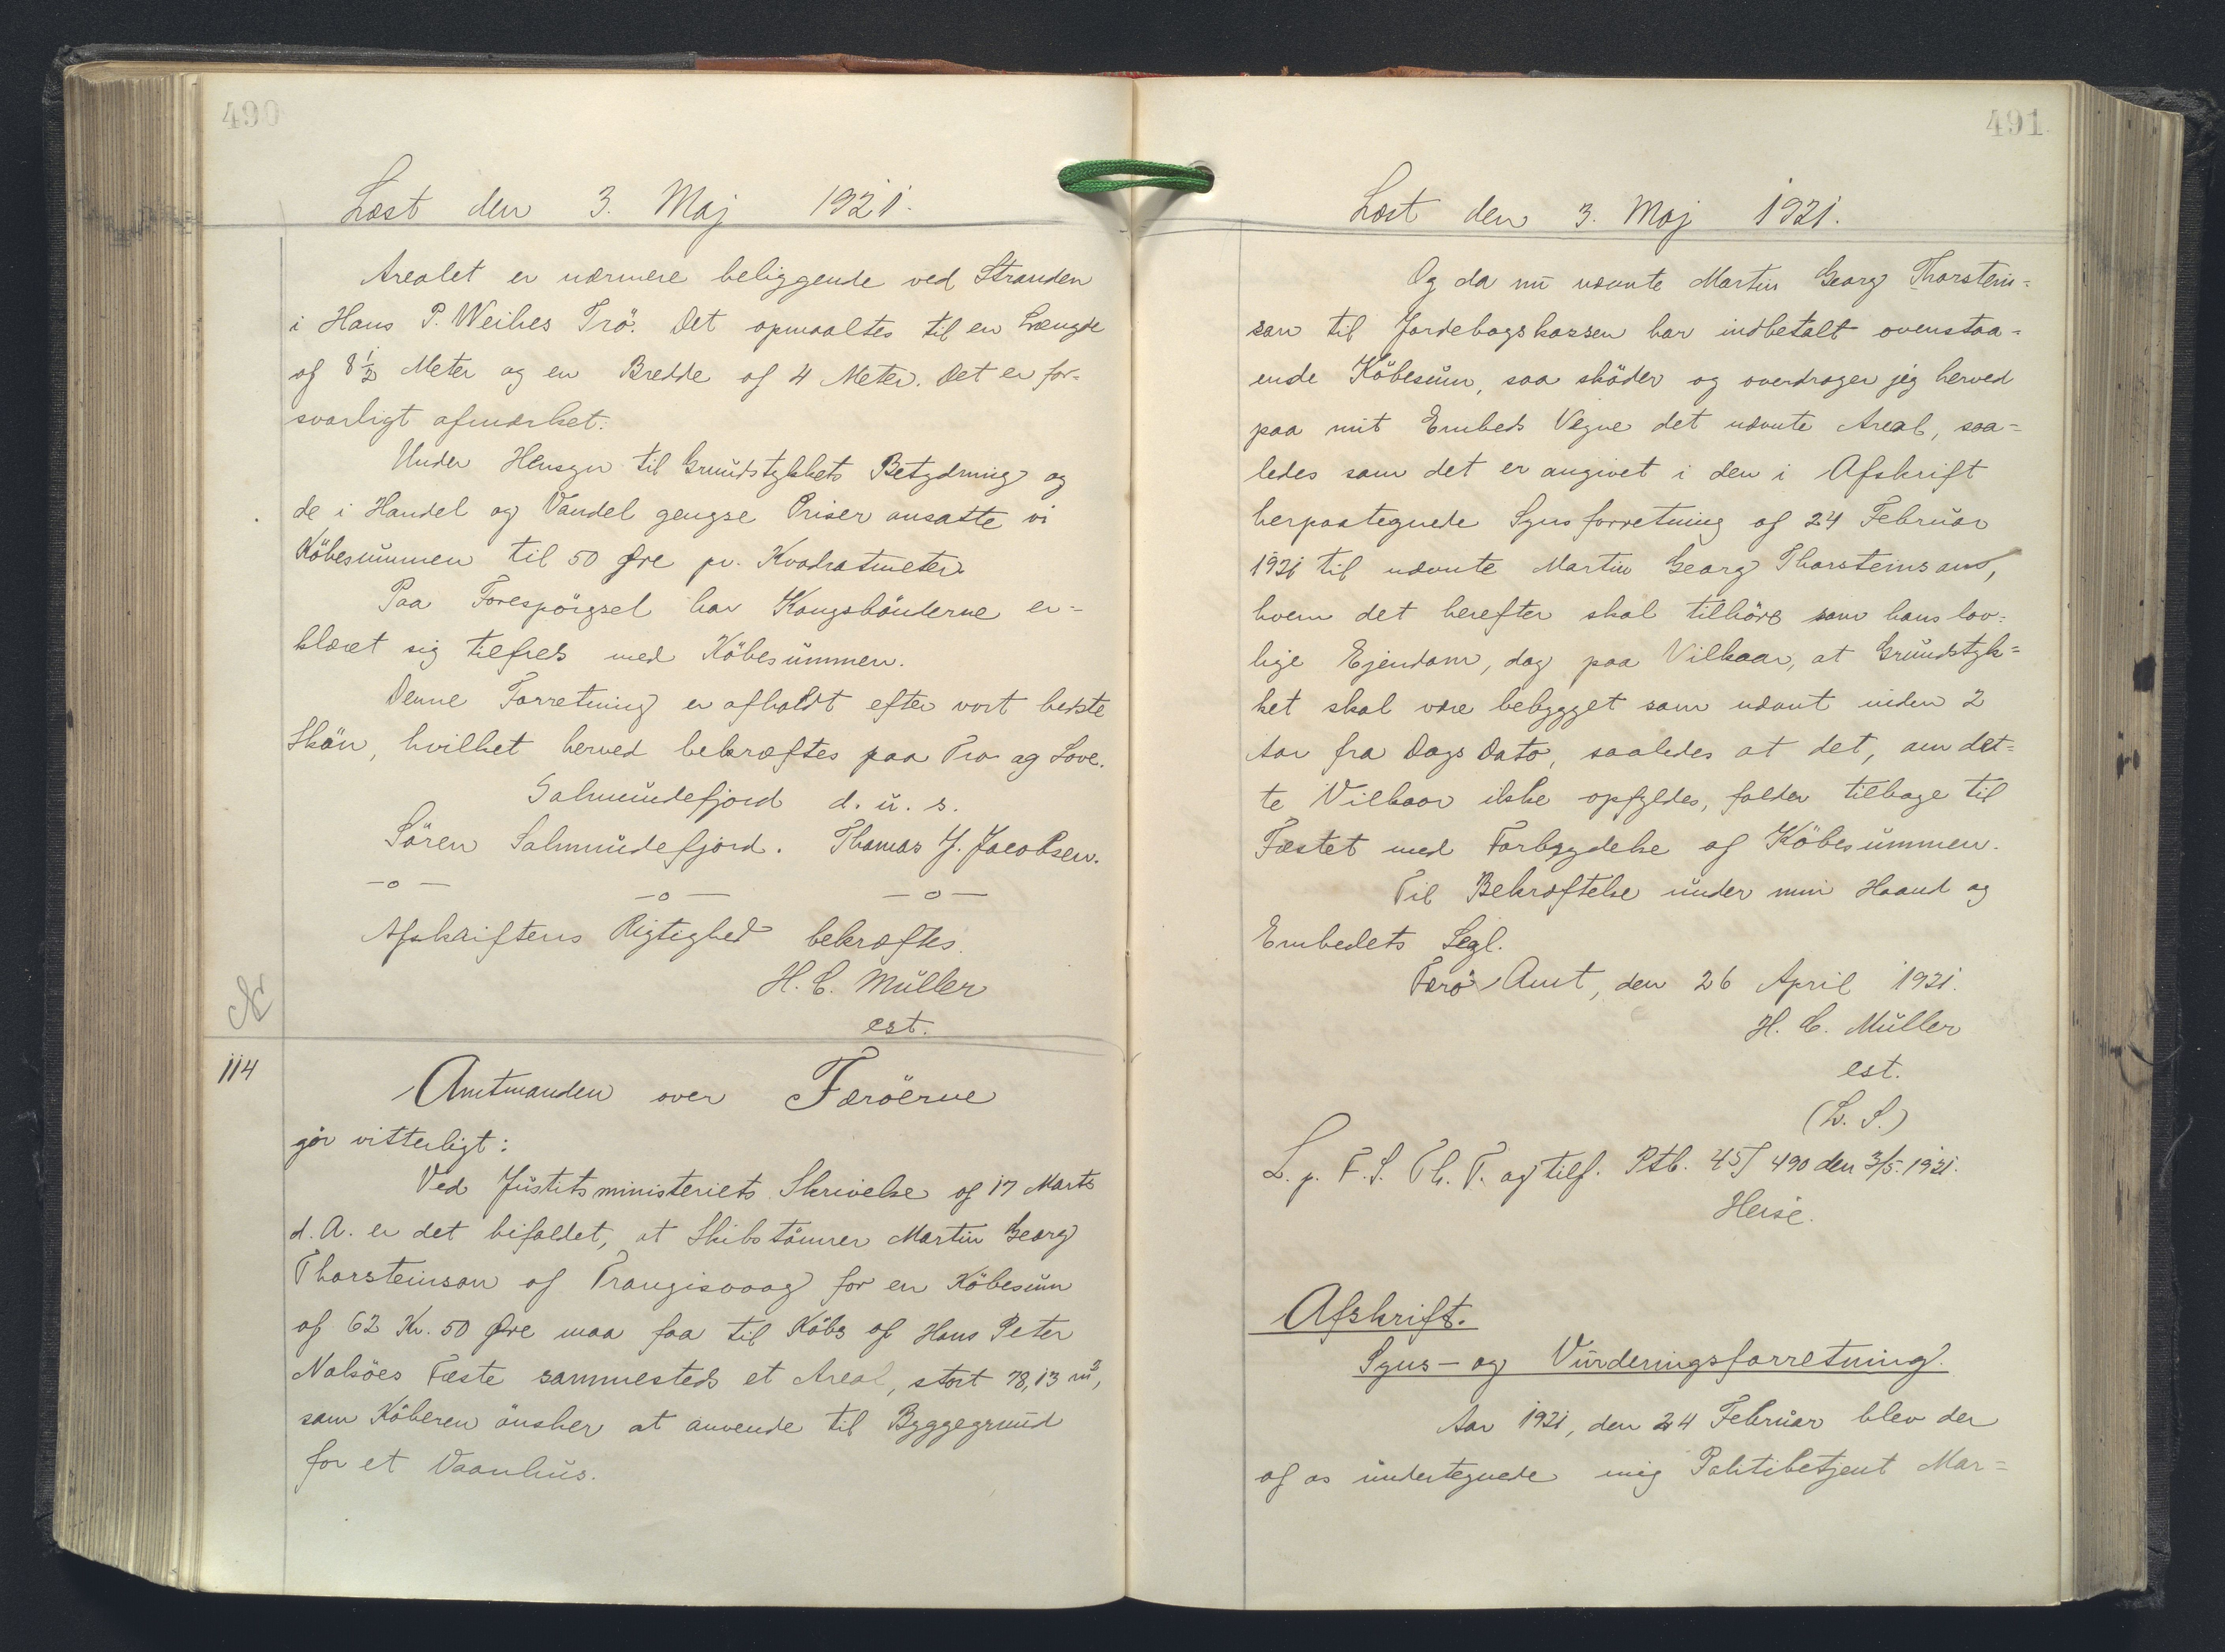 490
Læst den 3. Maj 1921.
Arealet er nærmere beliggende ved Stranden
i Hans P. Weihes Trö. Det opmaaltes til en Længde
af 8 1/2 Meter og en Bredde af 4 Meter. Det er for-
svarligt afmærket.
Under Hensyn til Grundstykkets Betydning og
de i Handel og Vandel gengse Priser ansatte vi
Köbesummen til 50 Øre pr. Kvadratmeter.
Paa Forespörgsel har Kongsbönderne er-
klæret sig tilfreds med Köbesummen.
Denne Forretning er afholdt efter vort bedste
Skön, hvilket herved bekræftes paa Tro og Love.
Salmundefjord d. u. s.
Sören Salmundefjord. Thomas J. Jacobsen.
-o- -o- -o-
Afskriftens Rigtighed bekræftes.
H. C. Müller
est.
114
Amtmanden over Færöerne
gör vitterligt:
Ved Justitsministeriets Skrivelse af 17 Marts
d. A. er det bifaldet, at Skibstömrer Martin Georg
Thorsteinson af Trangisvaag for en Köbesum
af 62 Kr. 50 Øre maa faa til Köbs af Hans Peter
Nolsöes Fæste sammesteds et Areal, stort 78,13 m²,
som Köberen önsker at anvende til Byggegrund
for et Vaanhus.
491
Læst den 3. Maj 1921.
Og da nu nævnte Martin Georg Thorstein-
son til Jordebogskassen har indbetalt ovenstaa-
ende Köbesum, saa sköder og overdrager jeg herved
paa mit Embeds Vegne det nævnte Areal, saa-
ledes som det er angivet i den i Afskrift
herpaategnede Synsforretning af 24 Februar
1921 til nævnte Martin Georg Thorsteinson,
hvem det herefter skal tilhöre som hans lov-
lige Ejendom, dog paa Vilkaar, at Grundstyk-
ket skal være bebygget som nævnt inden 2
Aar fra Dags Dato, saaledes at det, om det-
te Vilkaar ikke opfyldes, falder tilbage til
Fæstet med Forbrydelse af Köbesummen.
Til Bekræftelse under min Haand og
Embedets Segl.
Færö Amt, den 26 April 1921.
H. C. Müller
est.
(L. S.)
L. p. F. S. Th. T. og tilf. Ptb. 45/490 den 3/5. 1921.
Heise.
Afskrift.
Syns- og Vurderingsforretning.
Aar 1921, den 24 Februar blev der
af os undertegnede mig Politibetjent Mar-